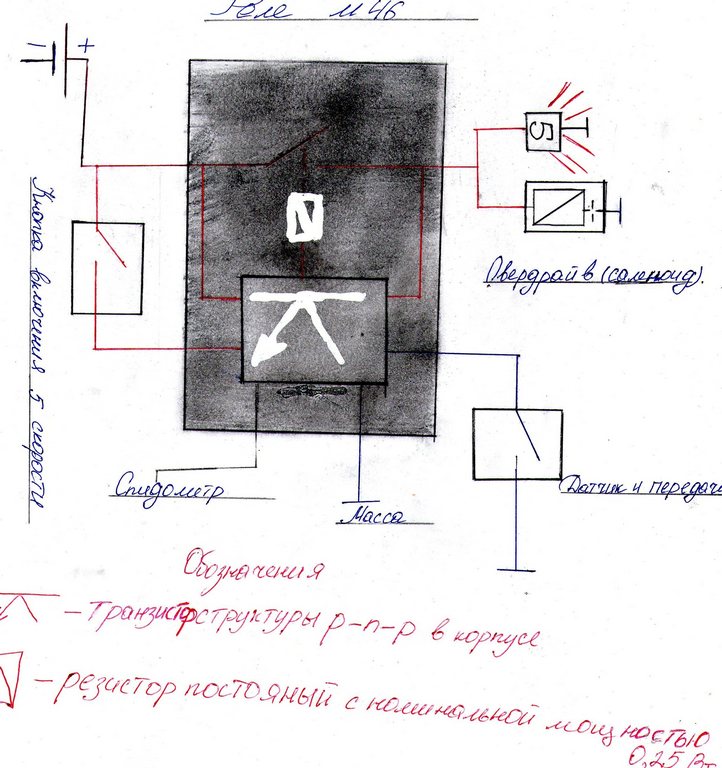 Реле М46
+
–
5
Овердрайв (саленоид).
Кнопка включения 5 скорости
Спидометр
Масса
Датчик 4 передачи
Обозначения
– транзистор структуры p-n-p в корпусе
– резистор постояный с номинальной мощностью
0,25 Вт